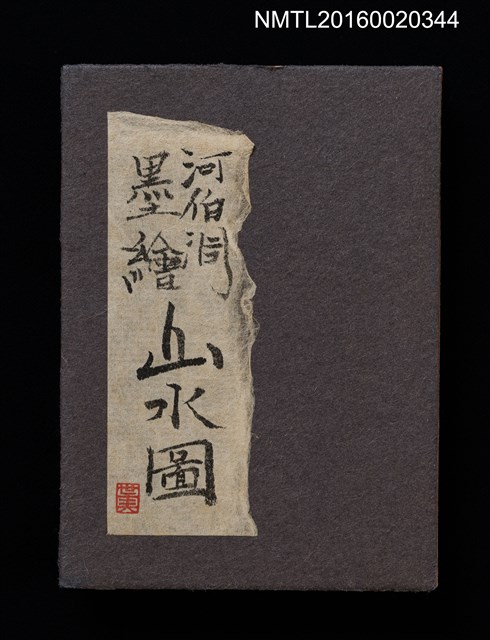 NMTL20160020344
河伯澗
墨繪
山水圖